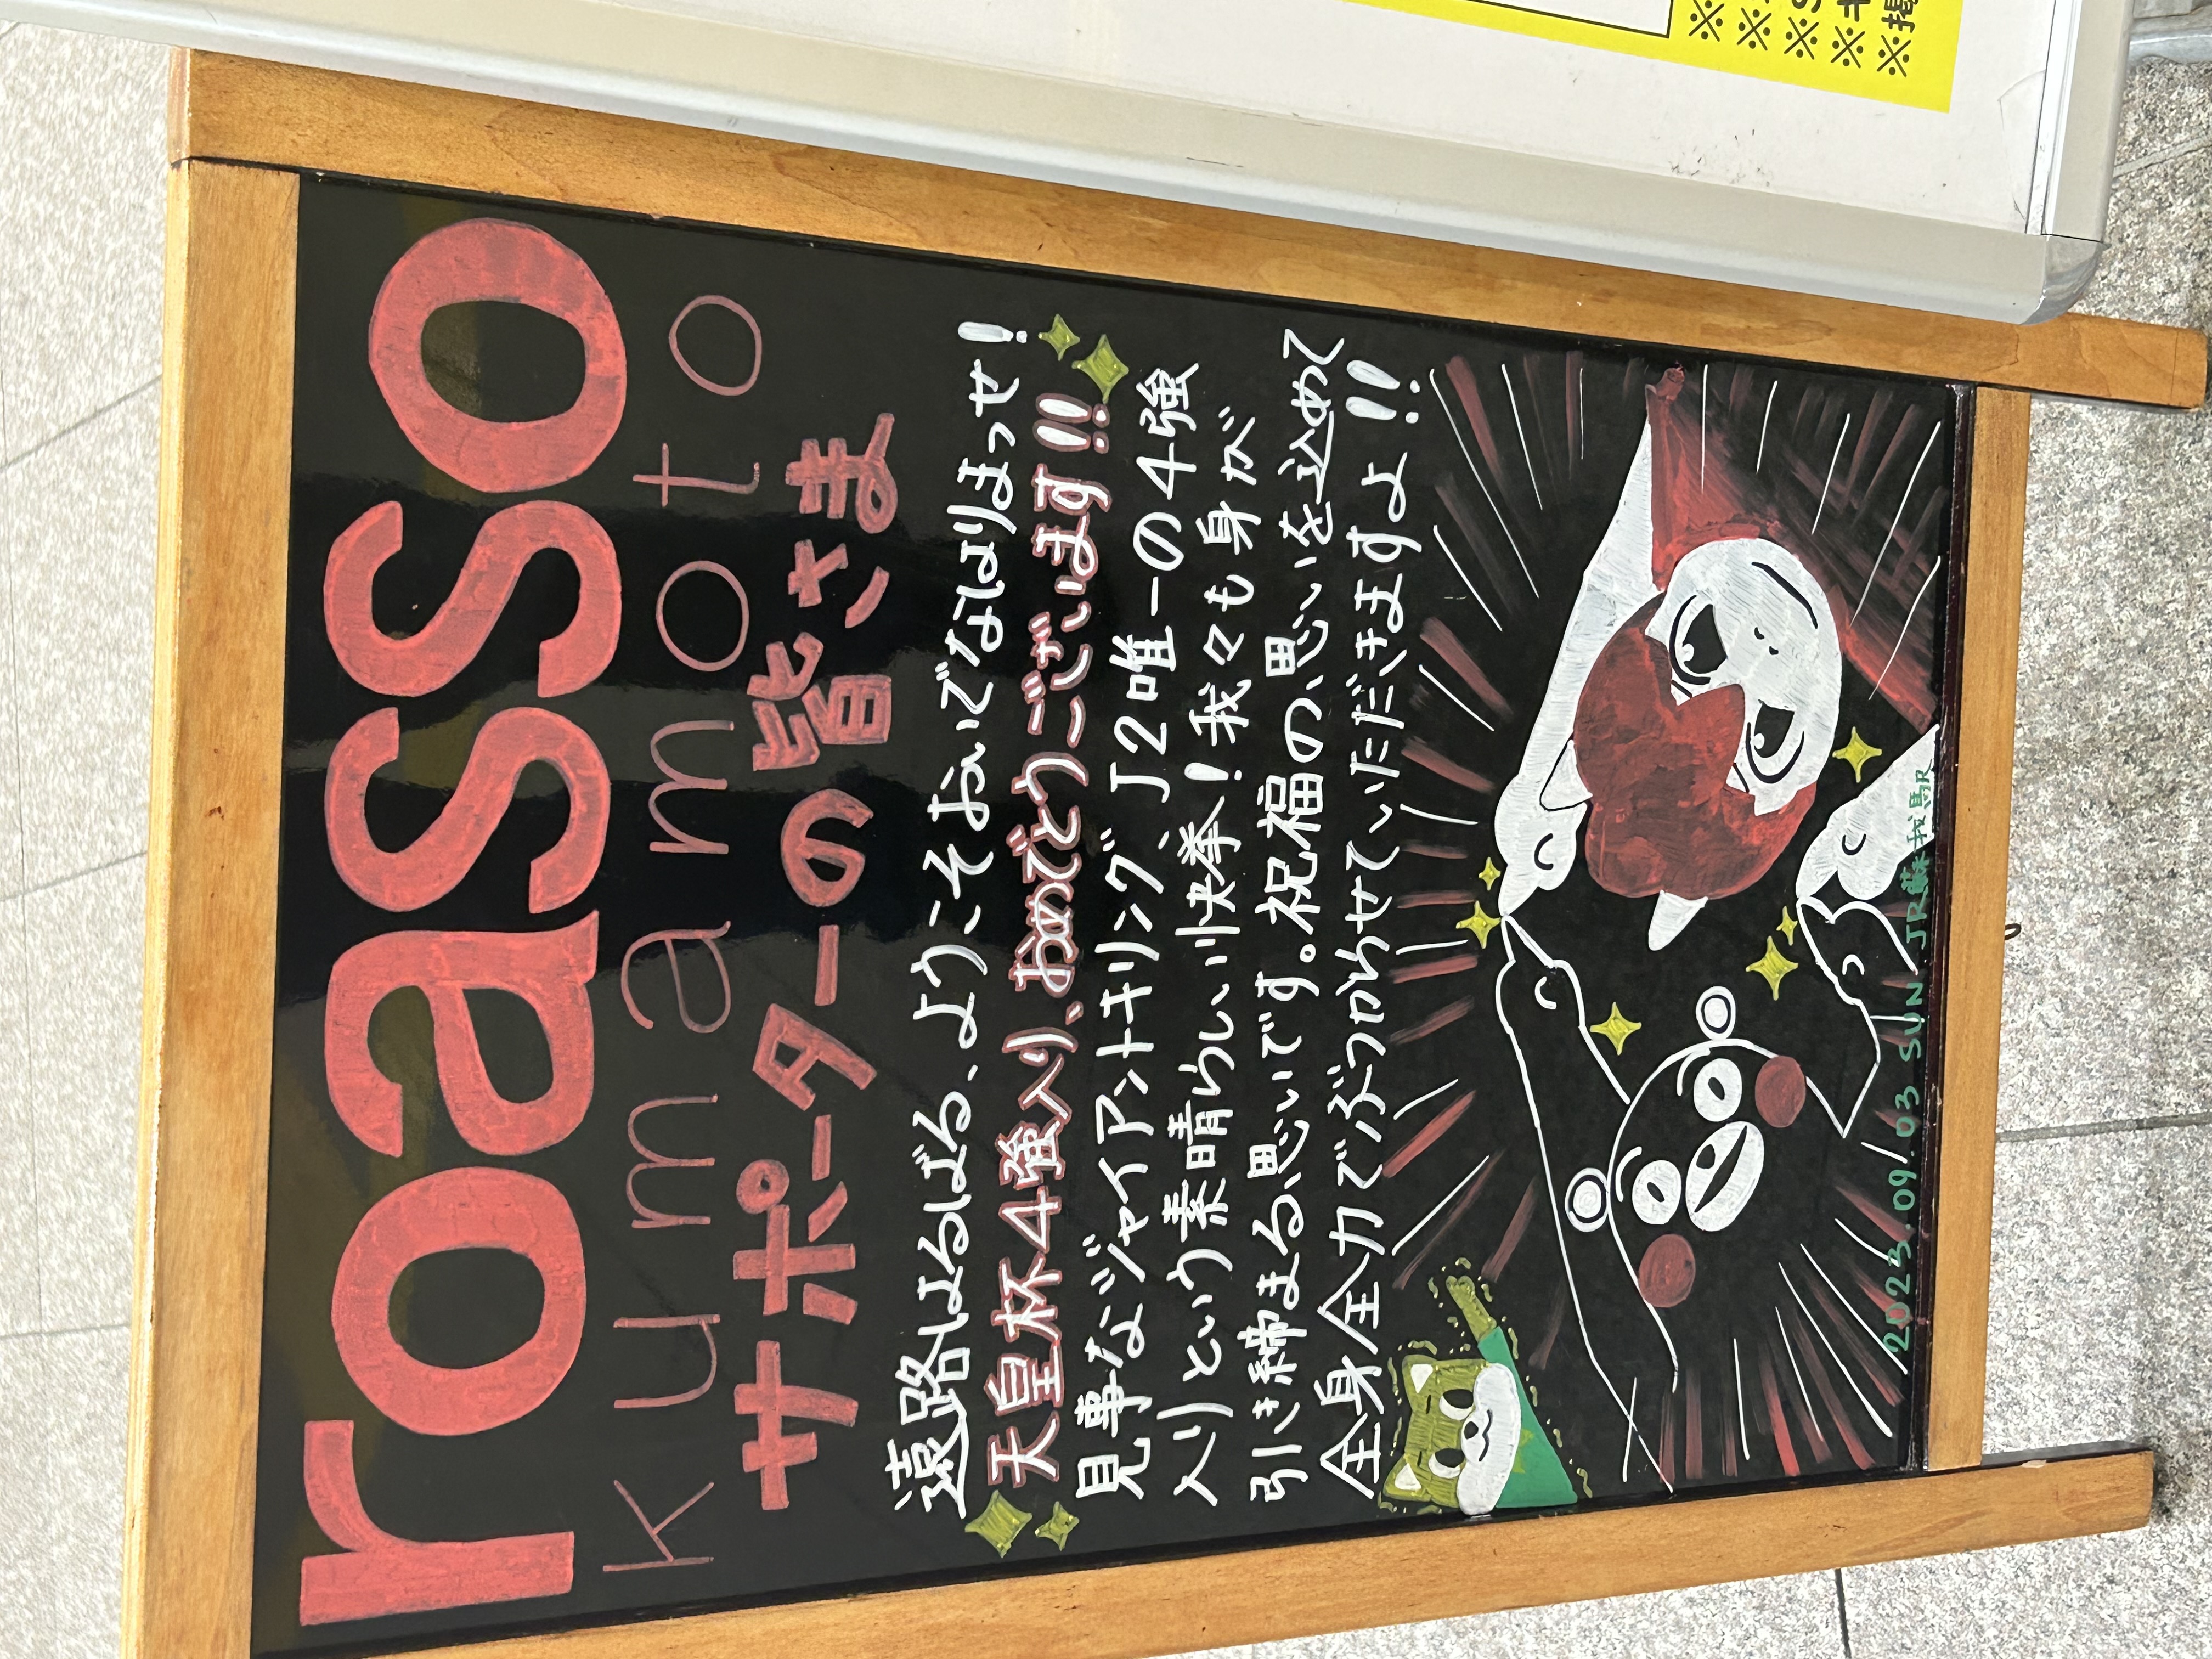 roasso
kumamoto
サポーターの皆さま
遠路はるばる、ようこそおいでなはりまっせ!
天皇杯4強入り、おめでとうございます!!
見事なジャイアントキリング J2唯一の4強
入りという素晴らしい快挙!我々も身が
引き締まる思いです。祝福の思いを込めて
全身全力でぶつからせていただきますよ!!
2023.09.03 SUN JR蘇我駅